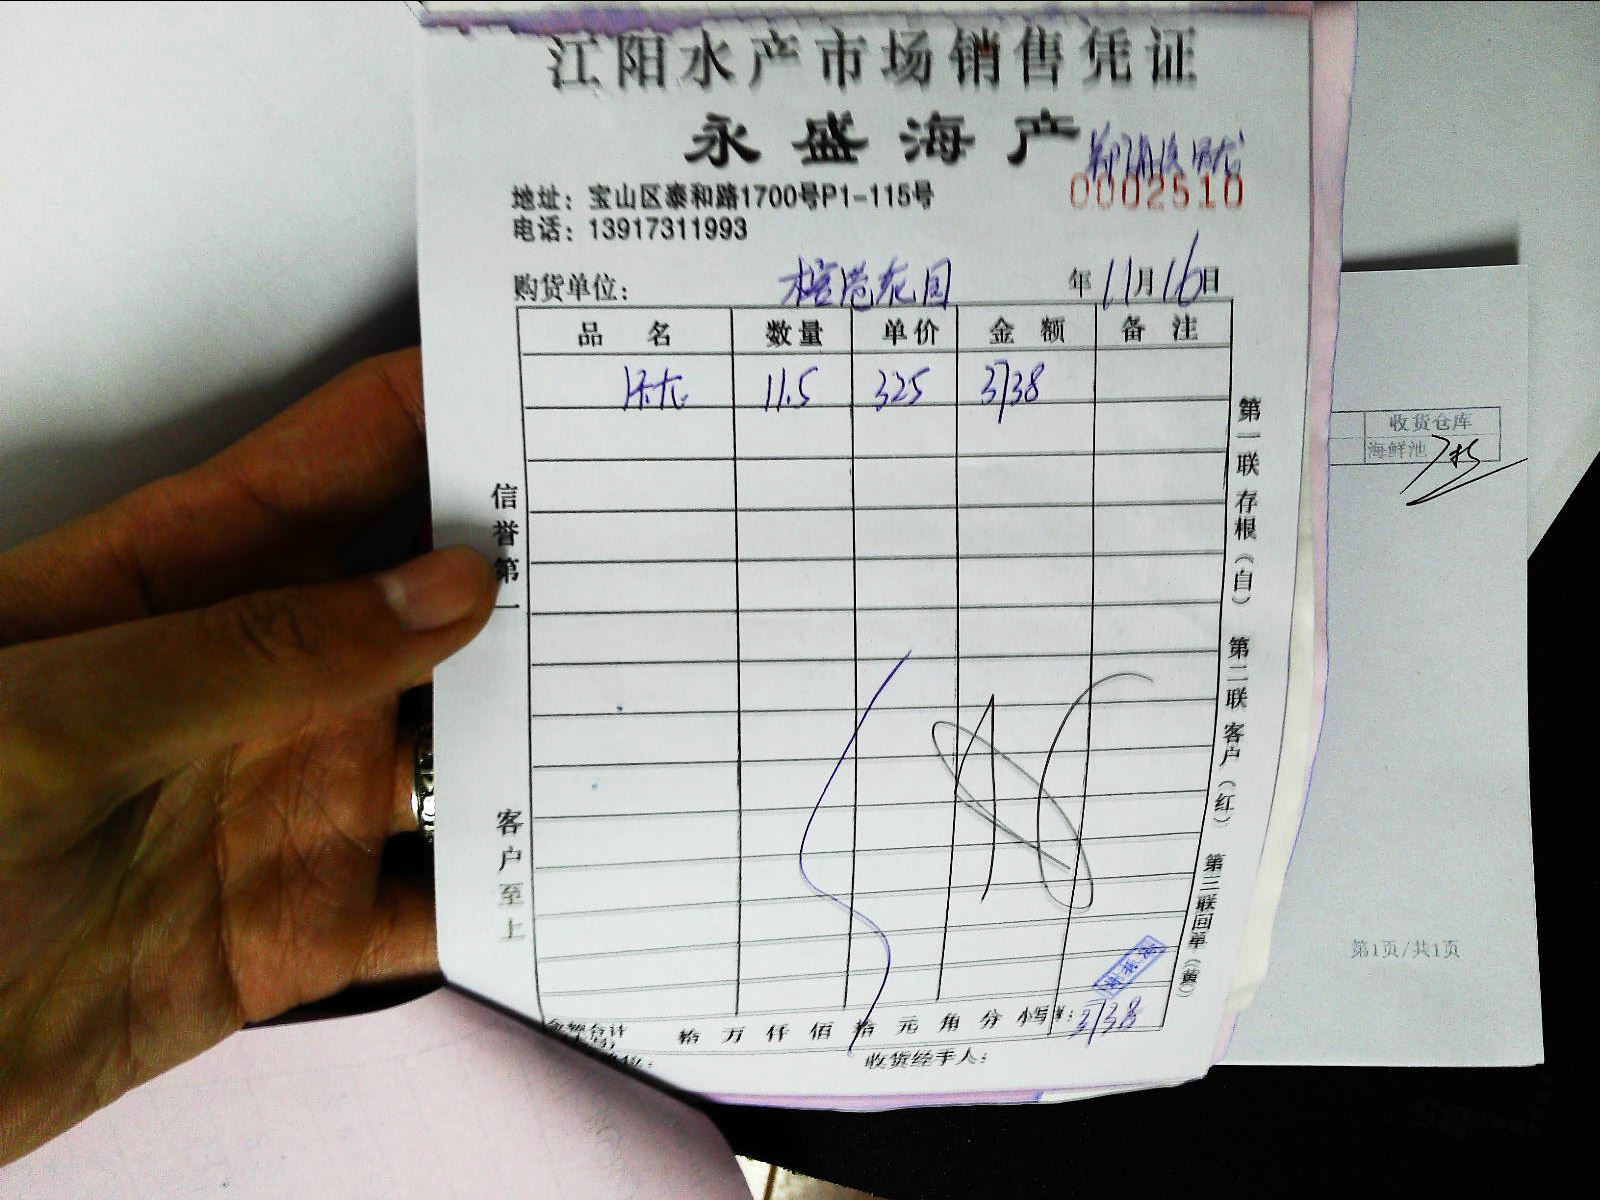 江阳水产市场销售凭证
永盛海产
0002510
地址：宝山区泰和路1700号P1-115号
电话：13917311993
购货单位： 花园 年 11月16日
品名 数量 单价 金额 备注
11.5 325 3738
信誉第一
客户至上
第一联存根（自） 第二联客户（红） 第三联回单（黄）
金额合计 拾万仟佰拾元角分 小写¥：3738
收货经手人：
收货仓库
海鲜池
第1页/共1页